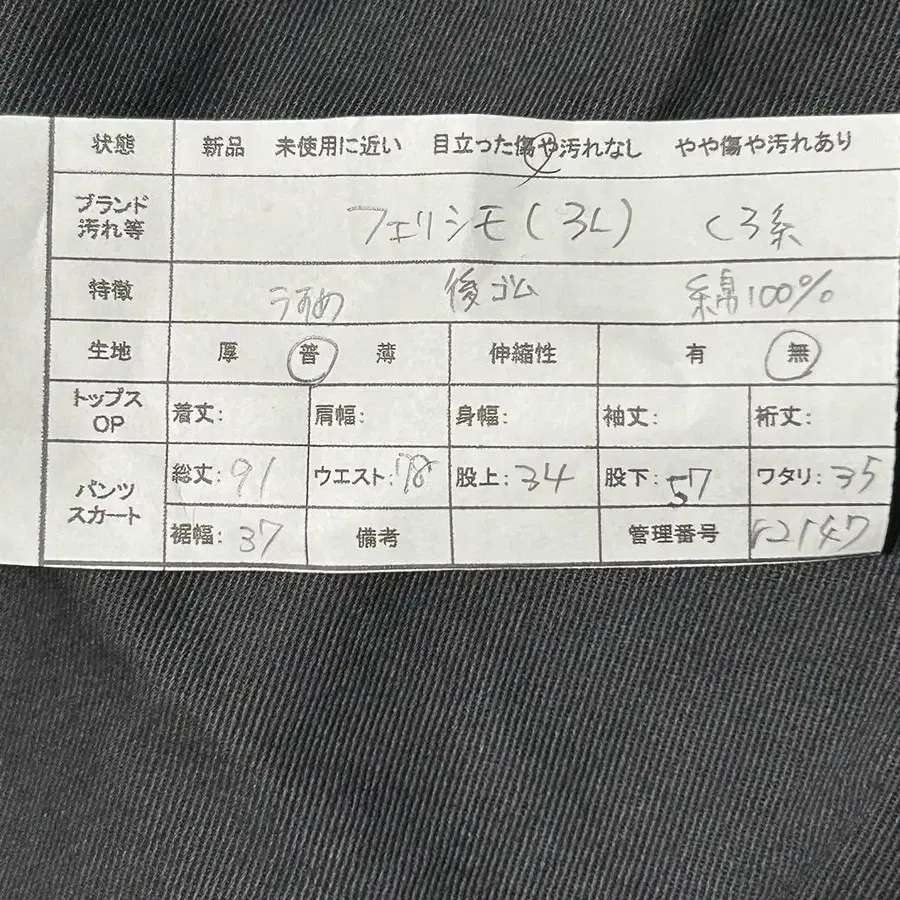 状態 新品 未使用に近い 目立った傷や汚れなし やや傷や汚れあり
ブランド 汚れ等 フェリシモ(3L) くろ系
特徴 うすめ 後ゴム 綿100%
生地 厚 普 薄 伸縮性 有 無
トップス OP 着丈: 肩幅: 身幅: 袖丈: 裄丈:
パンツ スカート 総丈: 91 ウエスト: 78 股上: 34 股下: 57 ワタリ: 35
裾幅: 37 備考 管理番号